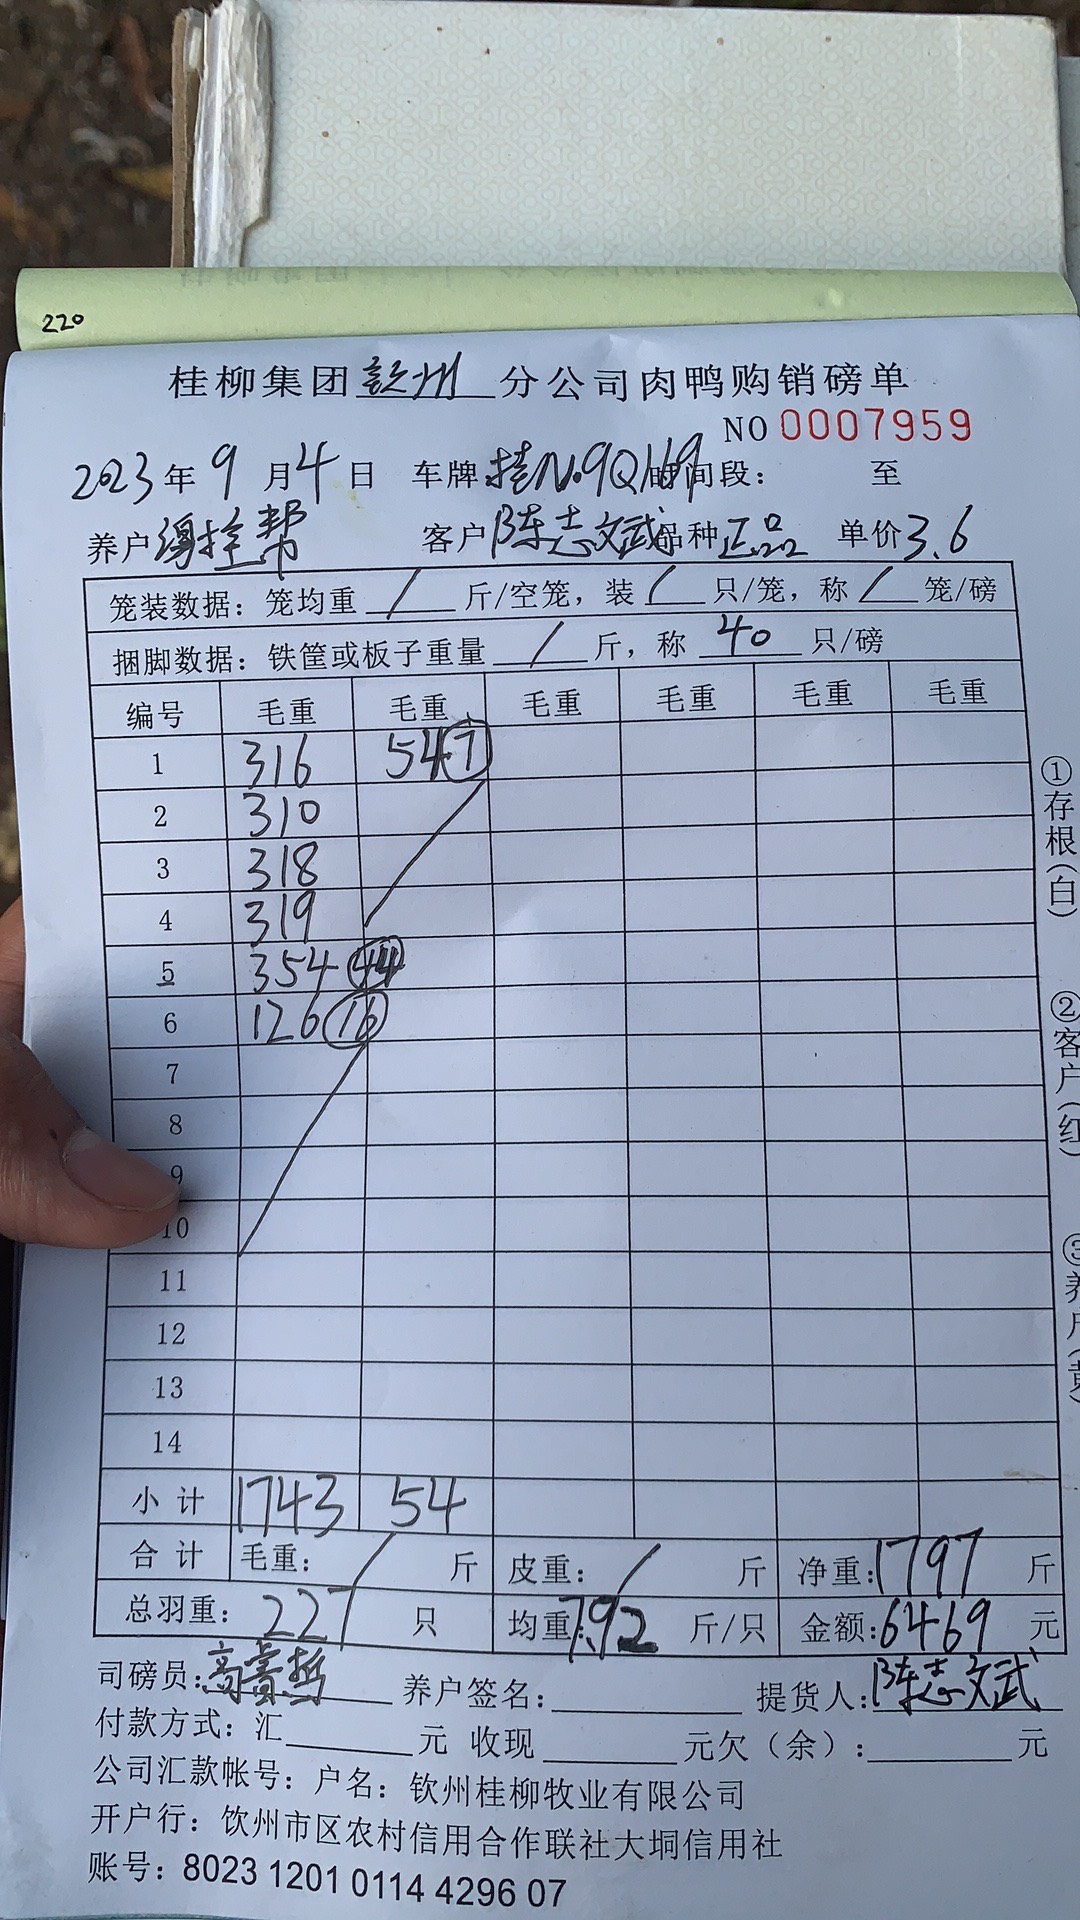 220
桂柳集团钦州分公司肉鸭购销磅单
NO 0007959
2023年9月4日 车牌桂N.9Q169时间段： 至
养户 帮 客户陈志文武品种正品 单价3.6
笼装数据：笼均重 / 斤/空笼，装 / 只/笼，称 / 笼/磅
捆脚数据：铁筐或板子重量 / 斤，称 40 只/磅
编号 毛重 毛重 毛重 毛重 毛重 毛重
1 316 54 7
2 310
3 318
4 319
5 354 44
6 126 16
7
8
9
10
11
12
13
14
小计 1743 54
合计 毛重： / 斤 皮重： / 斤 净重：1797 斤
总羽重： 227 只 均重：7.92 斤/只 金额：6469 元
司磅员：高 哲 养户签名： 提货人：陈志文武
付款方式：汇 元 收现 元欠（余）： 元
公司汇款帐号：户名：钦州桂柳牧业有限公司
开户行：饮州市区农村信用合作联社大垌信用社
账号：8023 1201 0114 4296 07
①存根（白）
②客户（红）
③养户（黄）